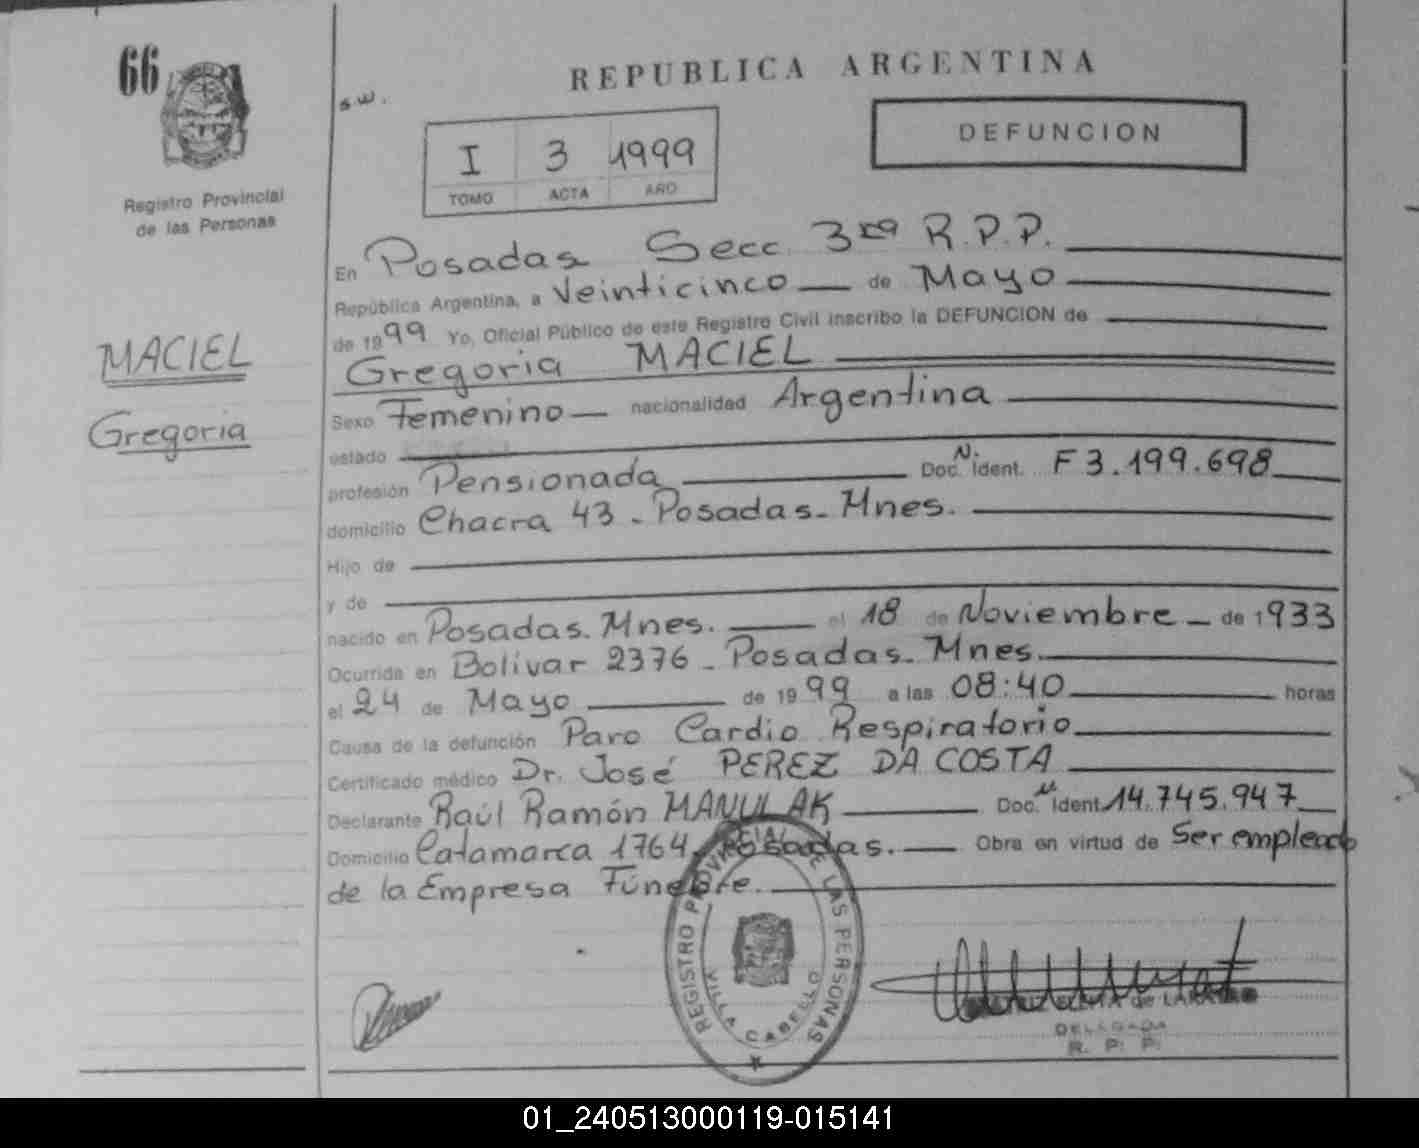 66
Registro Provincial
de las Personas
MACIEL
Gregoria
s.w.
REPUBLICA ARGENTINA
I 3 1999
TOMO ACTA AÑO
DEFUNCION
En Posadas Secc. 3ra R.P.P.
República Argentina, a Veinticinco de Mayo
de 1999 Yo, Oficial Público de este Registro Civil inscribo la DEFUNCION de
Gregoria MACIEL
Sexo Femenino nacionalidad Argentina
estado
profesión Pensionada Doc. N. Ident. F 3.199.698
domicilio Chacra 43 - Posadas - Mnes.
Hijo de
y de
nacido en Posadas. Mnes. el 18 de Noviembre de 1933
Ocurrida en Bolívar 2376 - Posadas - Mnes.
el 24 de Mayo de 1999 a las 08:40 horas
Causa de la defunción Paro Cardio Respiratorio
Certificado médico Dr. José PEREZ DA COSTA
Declarante Raúl Ramón MANULAK Doc. N. Ident. 14.745.947
Domicilio Catamarca 1764. Posadas. Obra en virtud de Ser empleado
de la Empresa Fúnebre.
REGISTRO PROVINCIAL DE LAS PERSONAS
VILLA CABELLO
de
DELEGADA
R. P. P.
01_240513000119-015141